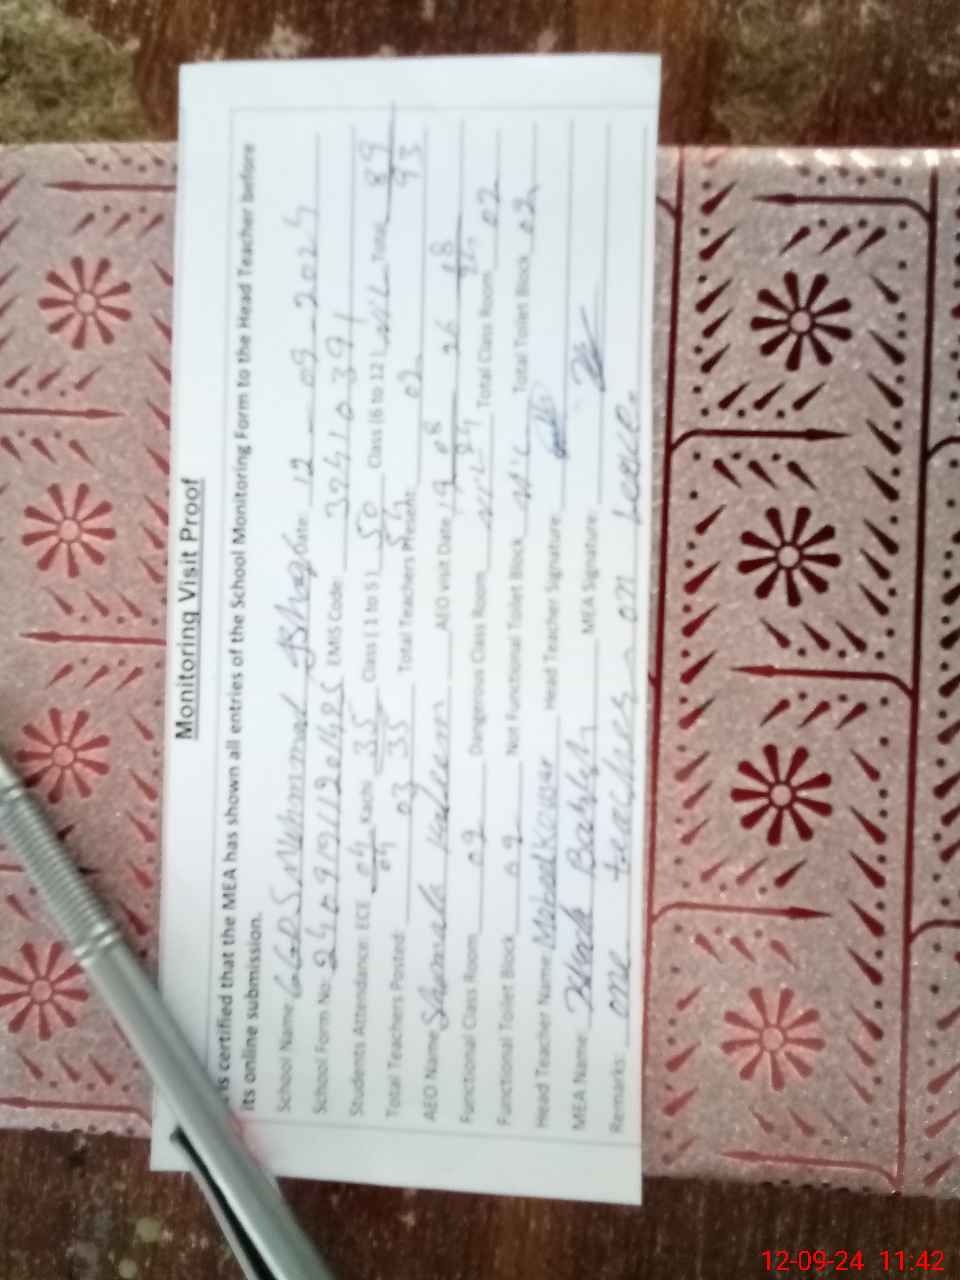 Monitoring Visit Proof
is certified that the MEA has shown all entries of the School Monitoring Form to the Head Teacher before
its online submission.
School Name: GGPS Muhammad Date: 12 - 09 - 2024
School Form No: EMIS Code: 39410391
Students Attendance: ECE 04 04 Kachi 35 35 Class (1 to 5) 50 54 Class (6 to 12) Nil Total 89 93
Total Teachers Posted: 03 Total Teachers Present: 02
AEO Name AEO visit Date 19 08 24 26 08 24
Functional Class Room 02 Dangerous Class Room Nil Total Class Room 02
Functional Toilet Block 02 Not Functional Toilet Block Nil Total Toilet Block 02
Head Teacher Name Head Teacher Signature:
MEA Name MEA Signature:
Remarks: one teacher on Leave.
12-09-24 11:42